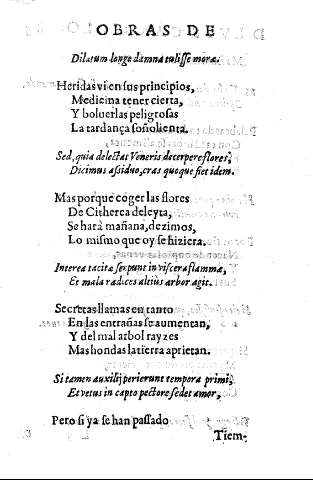 OBRAS DE
Dilatum longe damna tulisse moræ.
Heridas vi en sus principios,
Medicina tener cierta,
Y boluerlas peligrosas
La tardança soñolienta.
Sed, quia delectas Veneris decerpere flores,
Dicimus assiduo, cras quoque fiet idem.
Mas porque coger las flores
De Citherea deleyta,
Se hará mañana, dezimos,
Lo mismo que oy se hiziera.
Interea tacitæ serpunt in viscera flammæ,
Et mala radices altius arbor agit.
Secretas llamas en tanto
En las entrañas se aumentan,
Y del mal arbol rayzes
Mas hondas la tierra aprietan.
Si tamen auxilij perierunt tempora primi,
Et vetus in capto pectore sedet amor,
Pero si ya se han passado
Tiem-